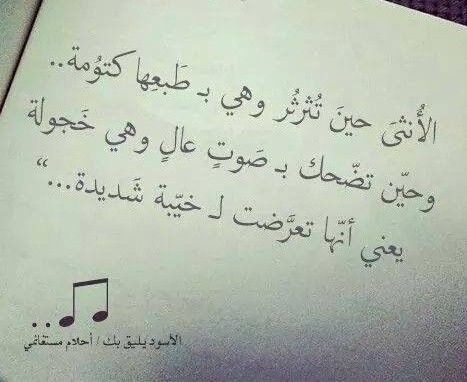 الأُنثى حينَ تُثرثُر وهي بـ طَبعِها كتوُمة..
وحيّن تضّحك بـ صَوتٍ عالٍ وهي خَجولة
يعني أنّها تعرَّضت لـ خيّبة شَديدة..."
الأسود يليق بك / أحلام مستغانمي